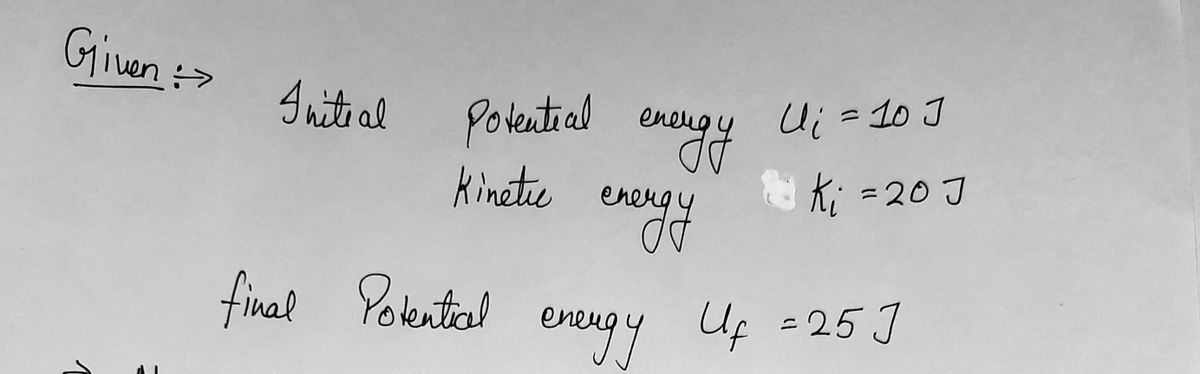 Given :→
Initial Potential energy Ui = 10 J
Kinetic energy Ki = 20 J
final Potential energy Uf = 25 J